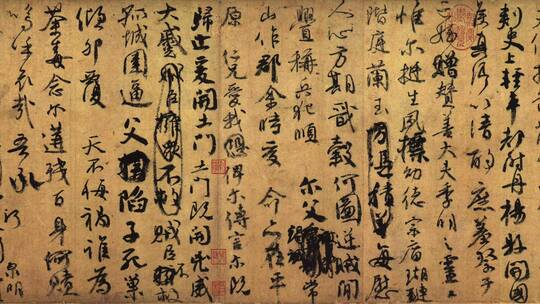 刺史上輕車都尉丹楊縣開國
侯真卿以清酌庶羞祭于
亡姪贈贊善大夫季明之靈曰
惟爾挺生夙標幼德宗廟瑚璉
階庭蘭玉方憑積善每慰
人心方期戩穀何圖逆賊閒
釁稱兵犯順爾父竭誠常
山作郡余時受命亦在平
原仁兄愛我俾爾傳言爾既
歸止爰開土門土門既開凶威
大蹙賊臣擁衆不救賊臣不救
孤城圍逼父陷子死巢
傾卵覆天不悔禍誰為
荼毒念爾遘殘百身何贖
嗚呼哀哉吾承
泉明